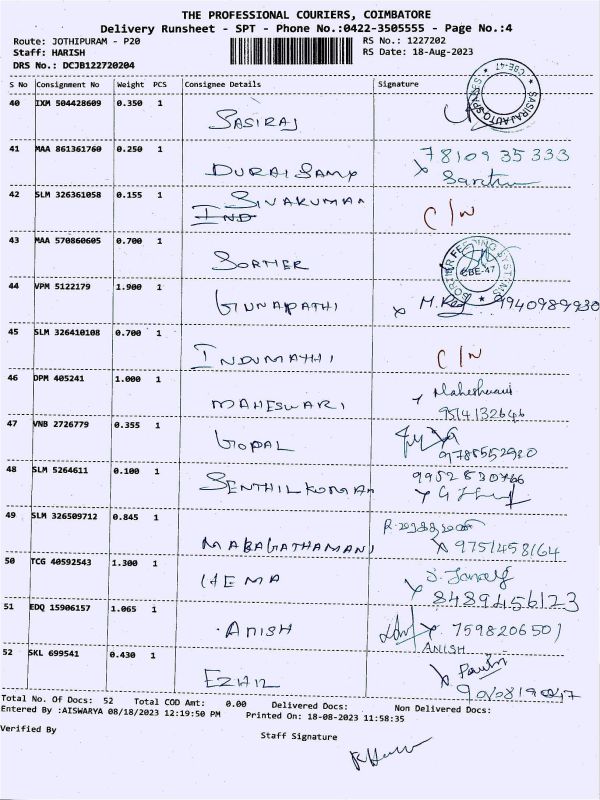 THE PROFESSIONAL COURIERS, COIMBATORE
Delivery Runsheet - SPT - Phone No.:0422-3505555 - Page No.:4
Route: JOTHIPURAM - P20
RS No.: 1227202
Staff: HARISH
RS Date: 18-Aug-2023
DRS No.: DCJB122720204
S No Consignment No Weight PCS Consignee Details Signature
40 IXM 504428609 0.350 1 SASIRAJ
SASIRAJ AUTO SPARES CBE-47
41 MAA 861361760 0.250 1 DURAISAMY 7810935333
42 SLM 326361058 0.155 1 SIVAKUMAR C/N
IND
43 MAA 570860605 0.700 1 SORTIER
CBE-47
44 VPM 5122179 1.900 1 GUNAPATHI 9940989930
45 SLM 326410108 0.700 1 INDUMATHI C/N
46 DPM 405241 1.000 1 MAHESWARI Maheshwari
9514132646
47 VNB 2726779 0.355 1 GOPAL
9785552980
48 SLM 5264611 0.100 1 SENTHILKUMAR 9952830766
49 SLM 326509712 0.845 1 MARAGATHAMANI 9751458164
50 TCG 40592543 1.300 1 HEMA
8489456123
51 EDQ 15906157 1.065 1 ANISH 7598206501
ANISH
52 SKL 699541 0.430 1 EZHIL
Total No. Of Docs: 52 Total COD Amt: 0.00 Delivered Docs: Non Delivered Docs:
Entered By :AISWARYA 08/18/2023 12:19:50 PM Printed On: 18-08-2023 11:58:35
Verified By
Staff Signature